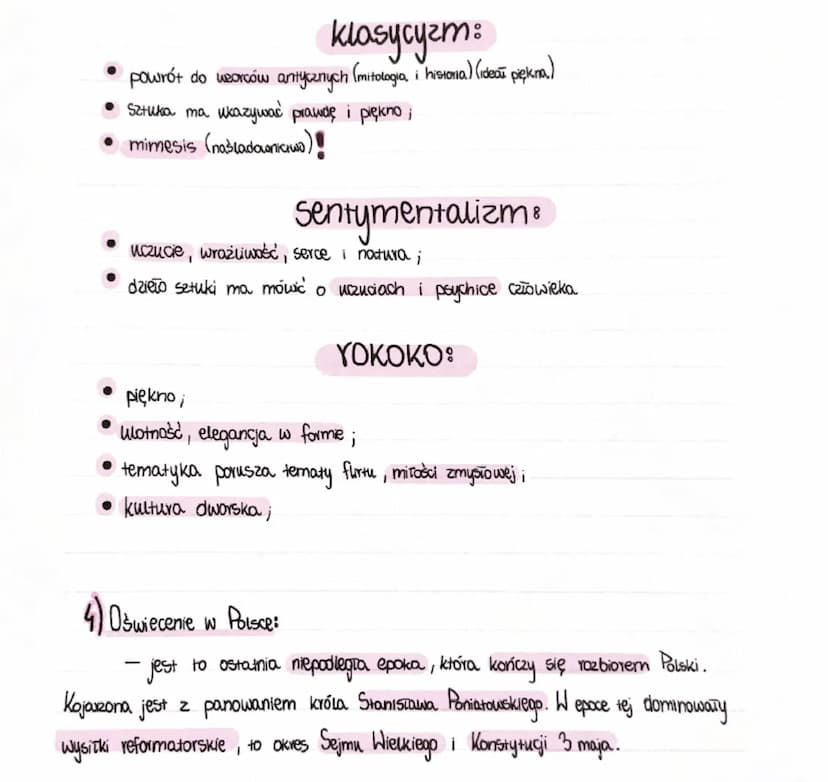 klasycyzm:
• powrót do wzorców antycznych (mitologia i historia) (ideał piękna)
• Sztuka ma wkazywać prawdę i piękno;
• mimesis (naśladownictwo)!
sentymentalizm:
• uczucie, wrażliwość, serce i natura;
• dzieło sztuki ma mówić o uczuciach i psychice człowieka
rokoko:
• piękno;
• ulotność, elegancja w formie;
• tematyka porusza tematy flirtu, miłości zmysłowej;
• kultura dworska;
4) Oświecenie w Polsce:
– jest to ostatnia niepodległa epoka, która kończy się rozbiorem Polski.
Kojarzona jest z panowaniem króla Stanisława Poniatowskiego. W epoce tej dominowały
wysiłki reformatorskie, to okres Sejmu Wielkiego i Konstytucji 3 maja.